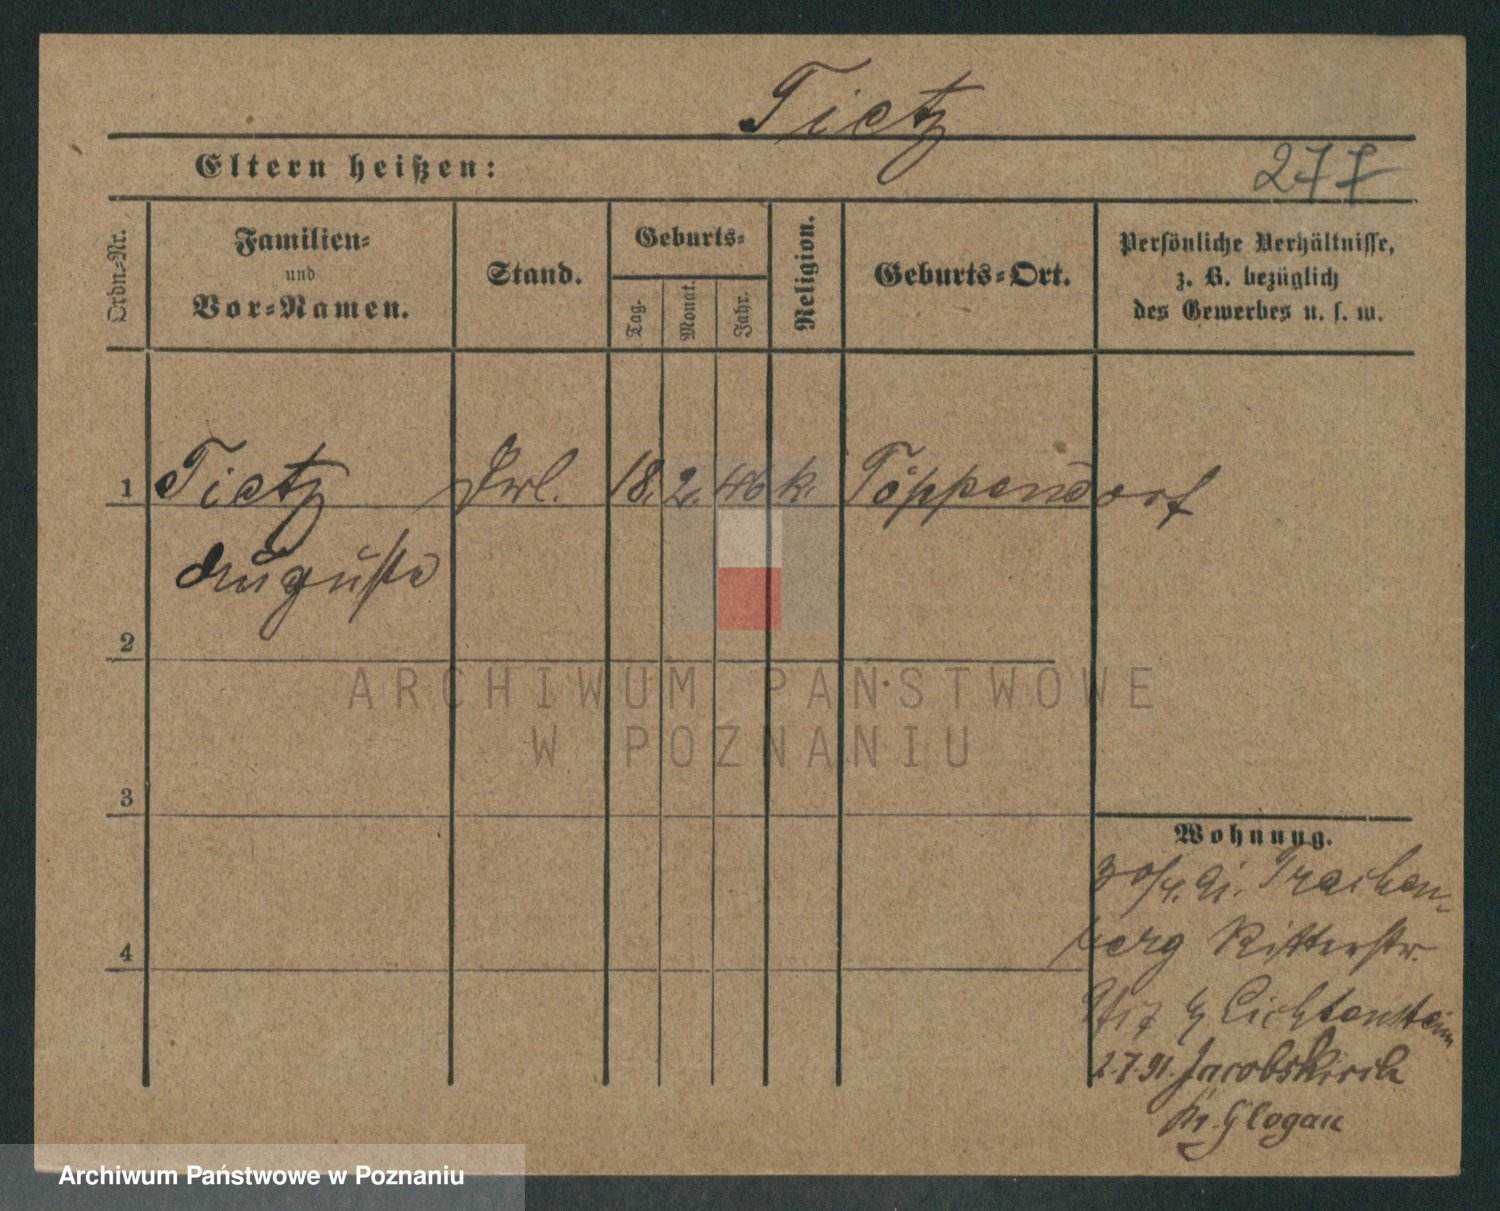 Tietz
Eltern heißen:
277
Ordn.-Nr.
Familien-
und
Vor-Namen.
Stand.
Geburts-
Tag.
Monat.
Jahr.
Religion.
Geburts-Ort.
Persönliche Verhältnisse,
z. B. bezüglich
des Gewerbes u. s. w.
1 Tietz Frl. 18. 2. 46 k. Töppendorf
Auguste
2
ARCHIWUM PAŃSTWOWE
W POZNANIU
3
Wohnung.
30/4. 91. Trachen-
berg Ritterstr.
Lichtenstein
2.7.91. Jacobskirch
Kr. Glogau
4
Archiwum Państwowe w Poznaniu